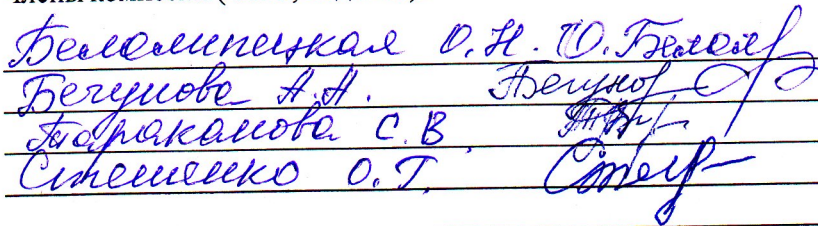 Беломипецкая О.Н. О.Белом
Бегунова А.А. Бегунов
Тараканова С.В.
Стешенко О.Г.